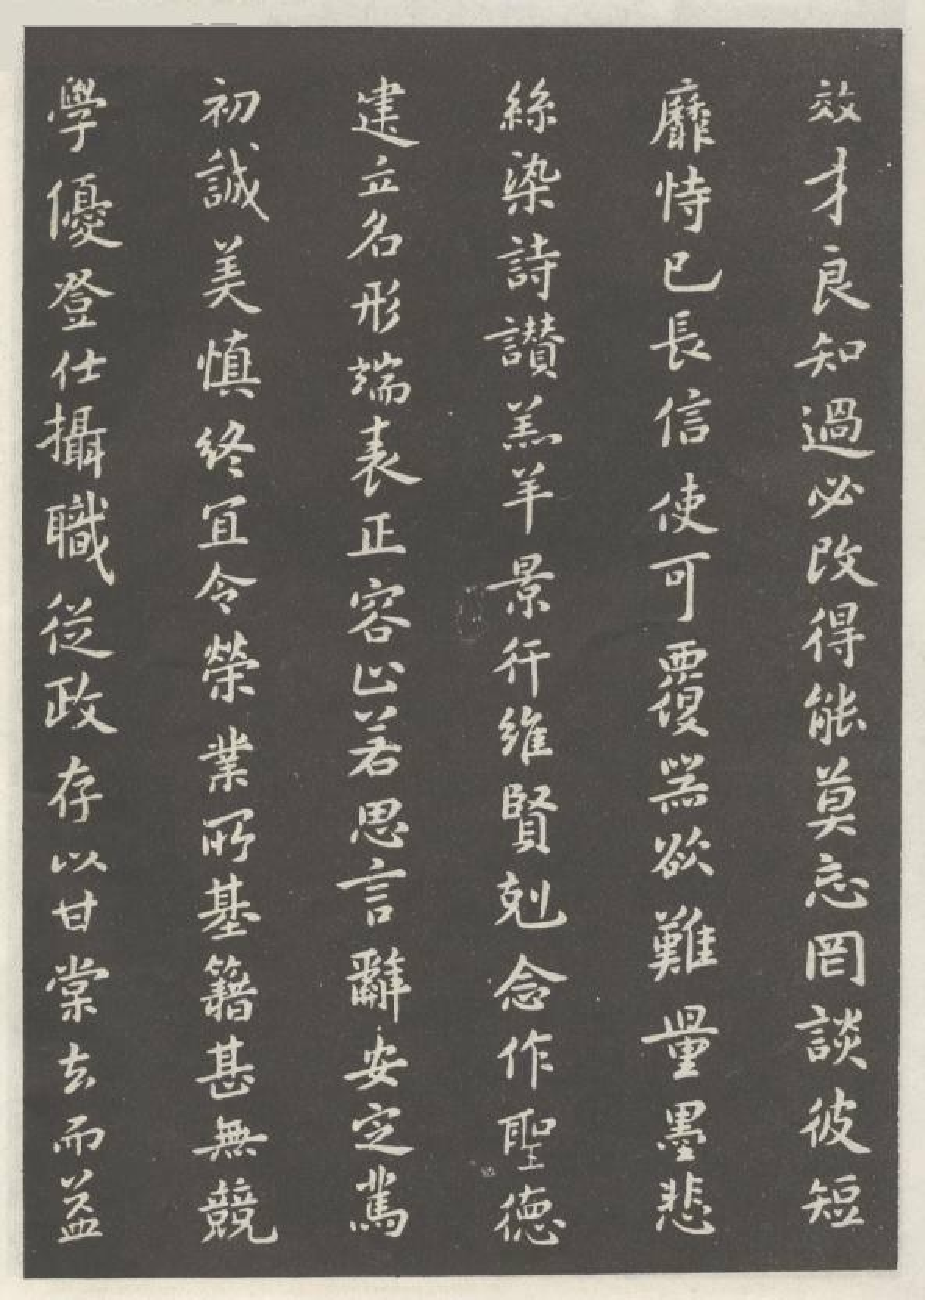 效才良知過必改得能莫忘罔談彼短
靡恃已長信使可覆器欲難量墨悲
絲染詩讚羔羊景行維賢剋念作聖德
建立名形端表正容止若思言辭安定篤
初誠美慎終宜令榮業所基籍甚無競
學優登仕攝職從政存以甘棠去而益